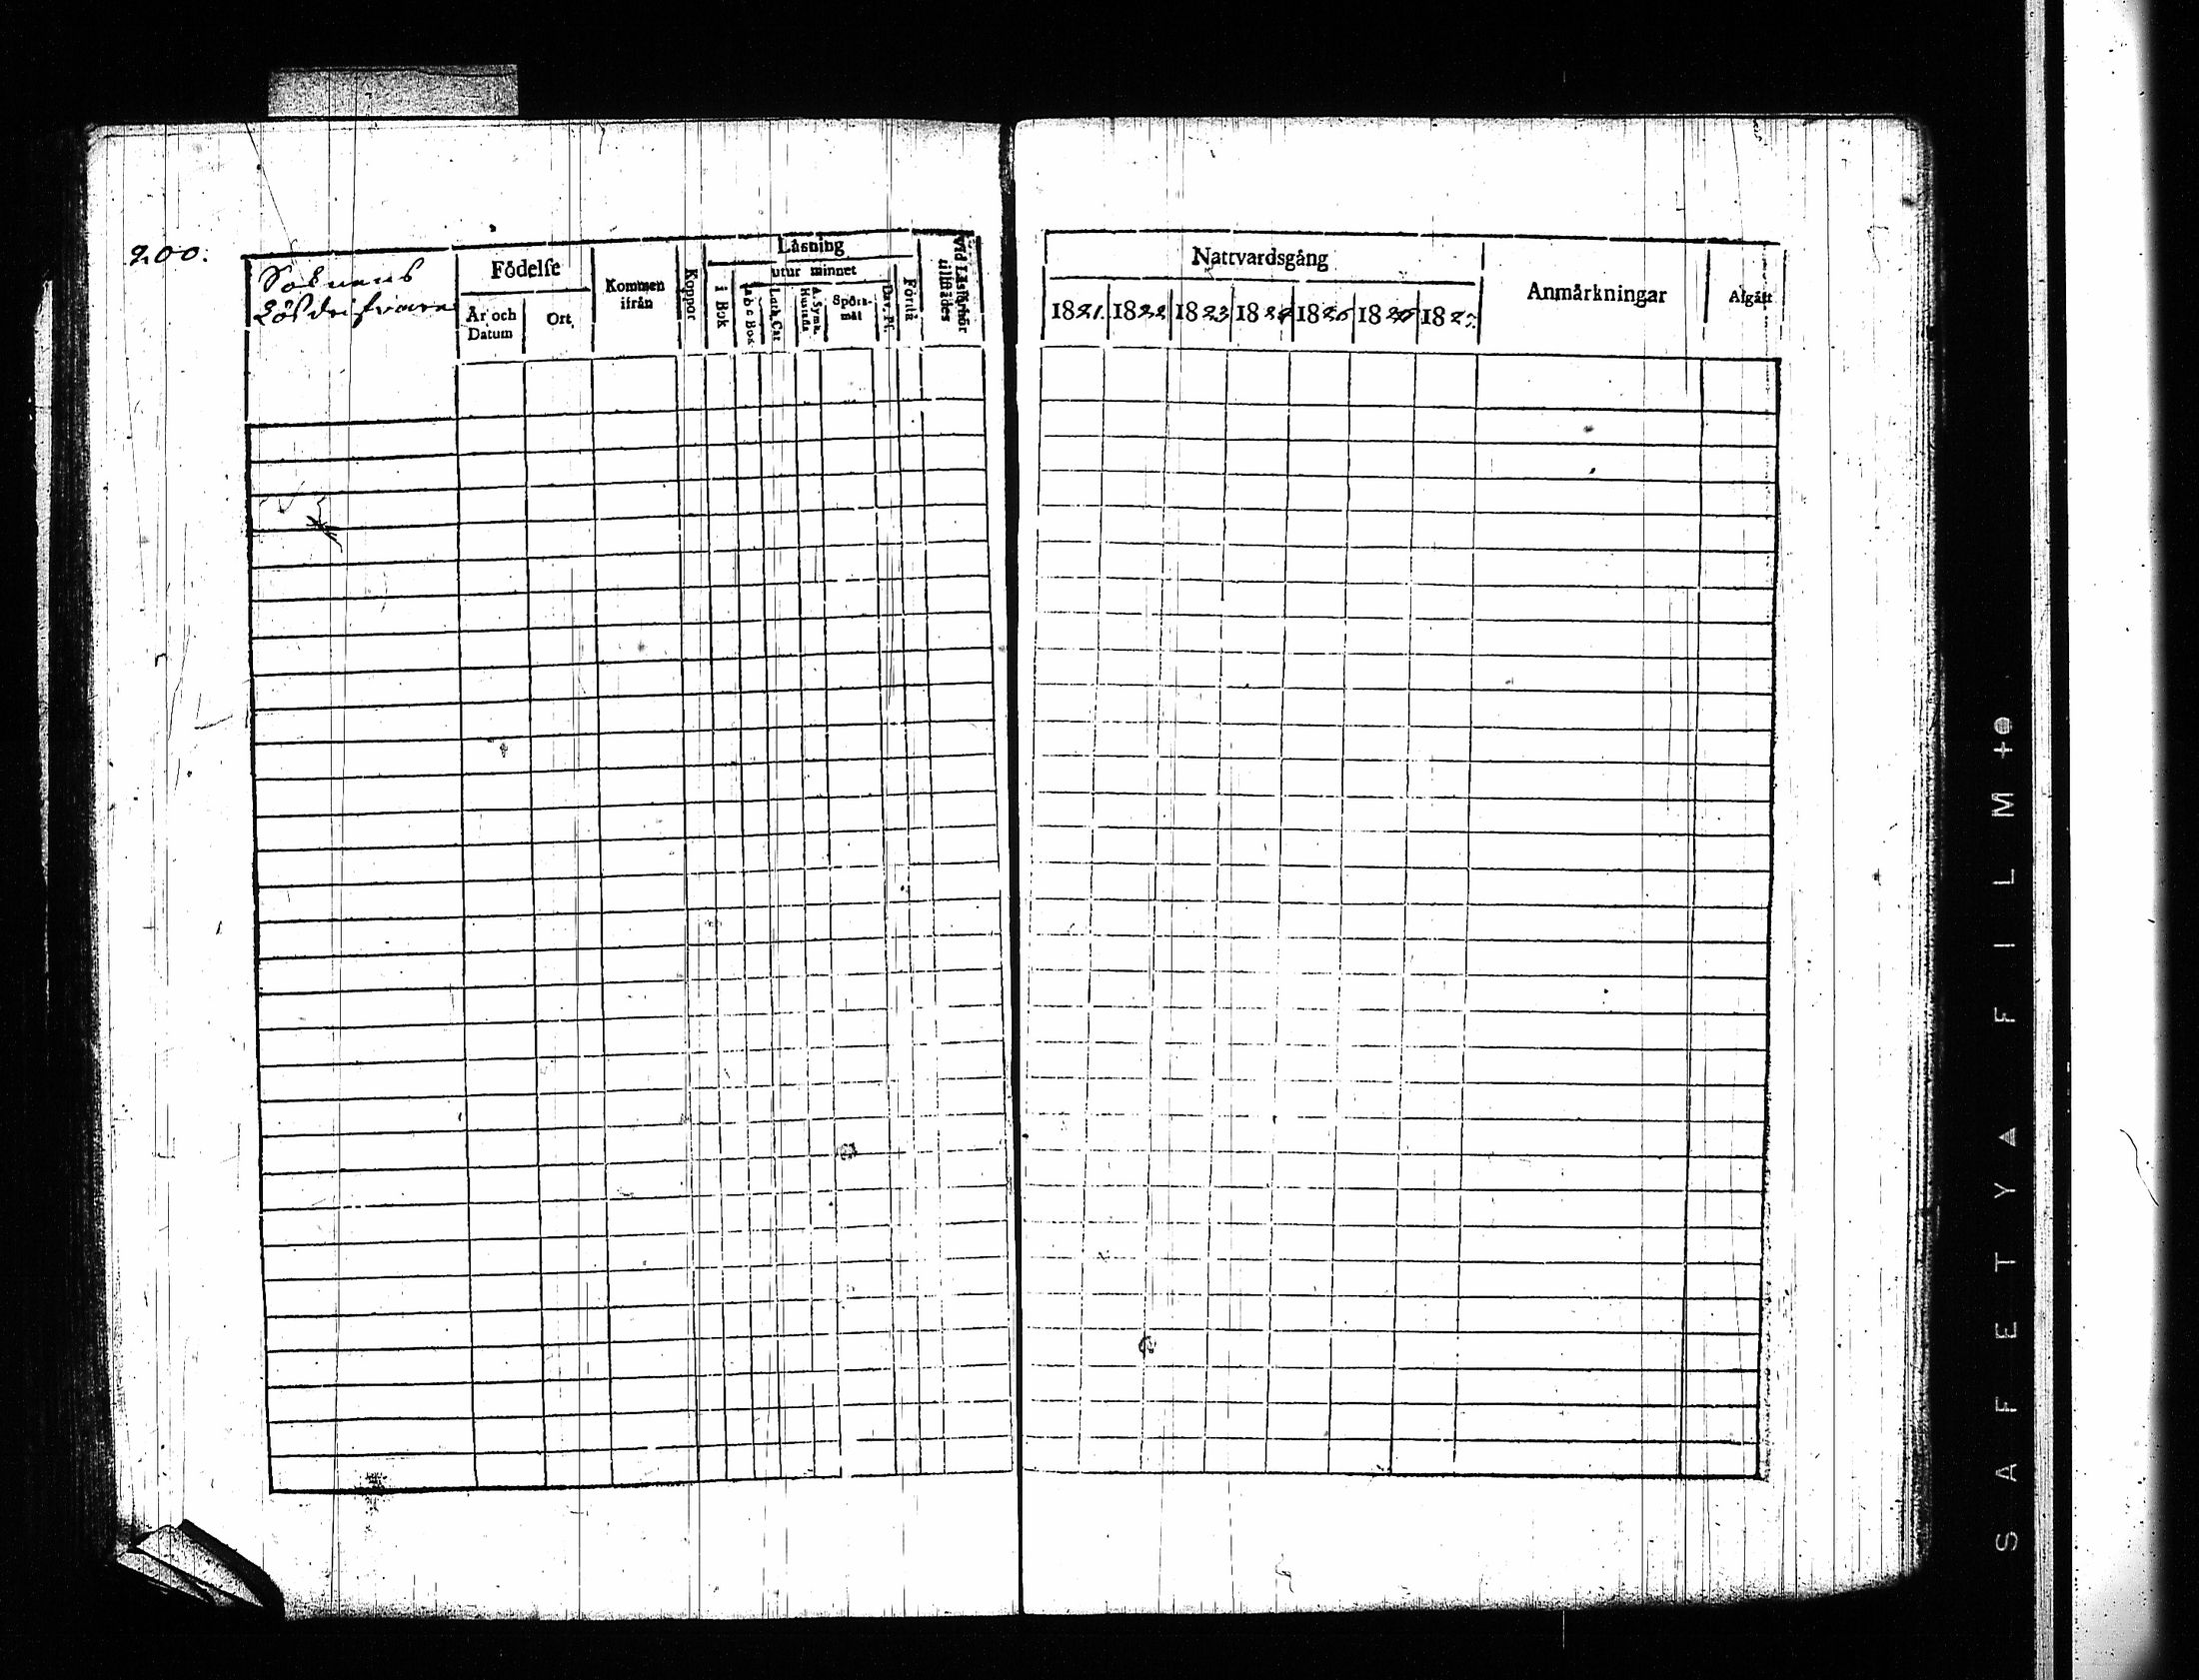 200.
Soknens
Lösdrifvare
Födelse
År och Datum
Ort
Kommen ifrån
Koppor
Låsning
i Bok
utur minnet
a b c Bok
Luth. Cat
A. Symb. Hustafla
Spörsmål
Dav. Ps.
Förstå
Vid Läsförhör tillstådes
Nattvardsgång
1821. 1822 1823 1824 1825 1826 1827.
Anmårkningar
Afgått
SAFETY▲ FILM +●